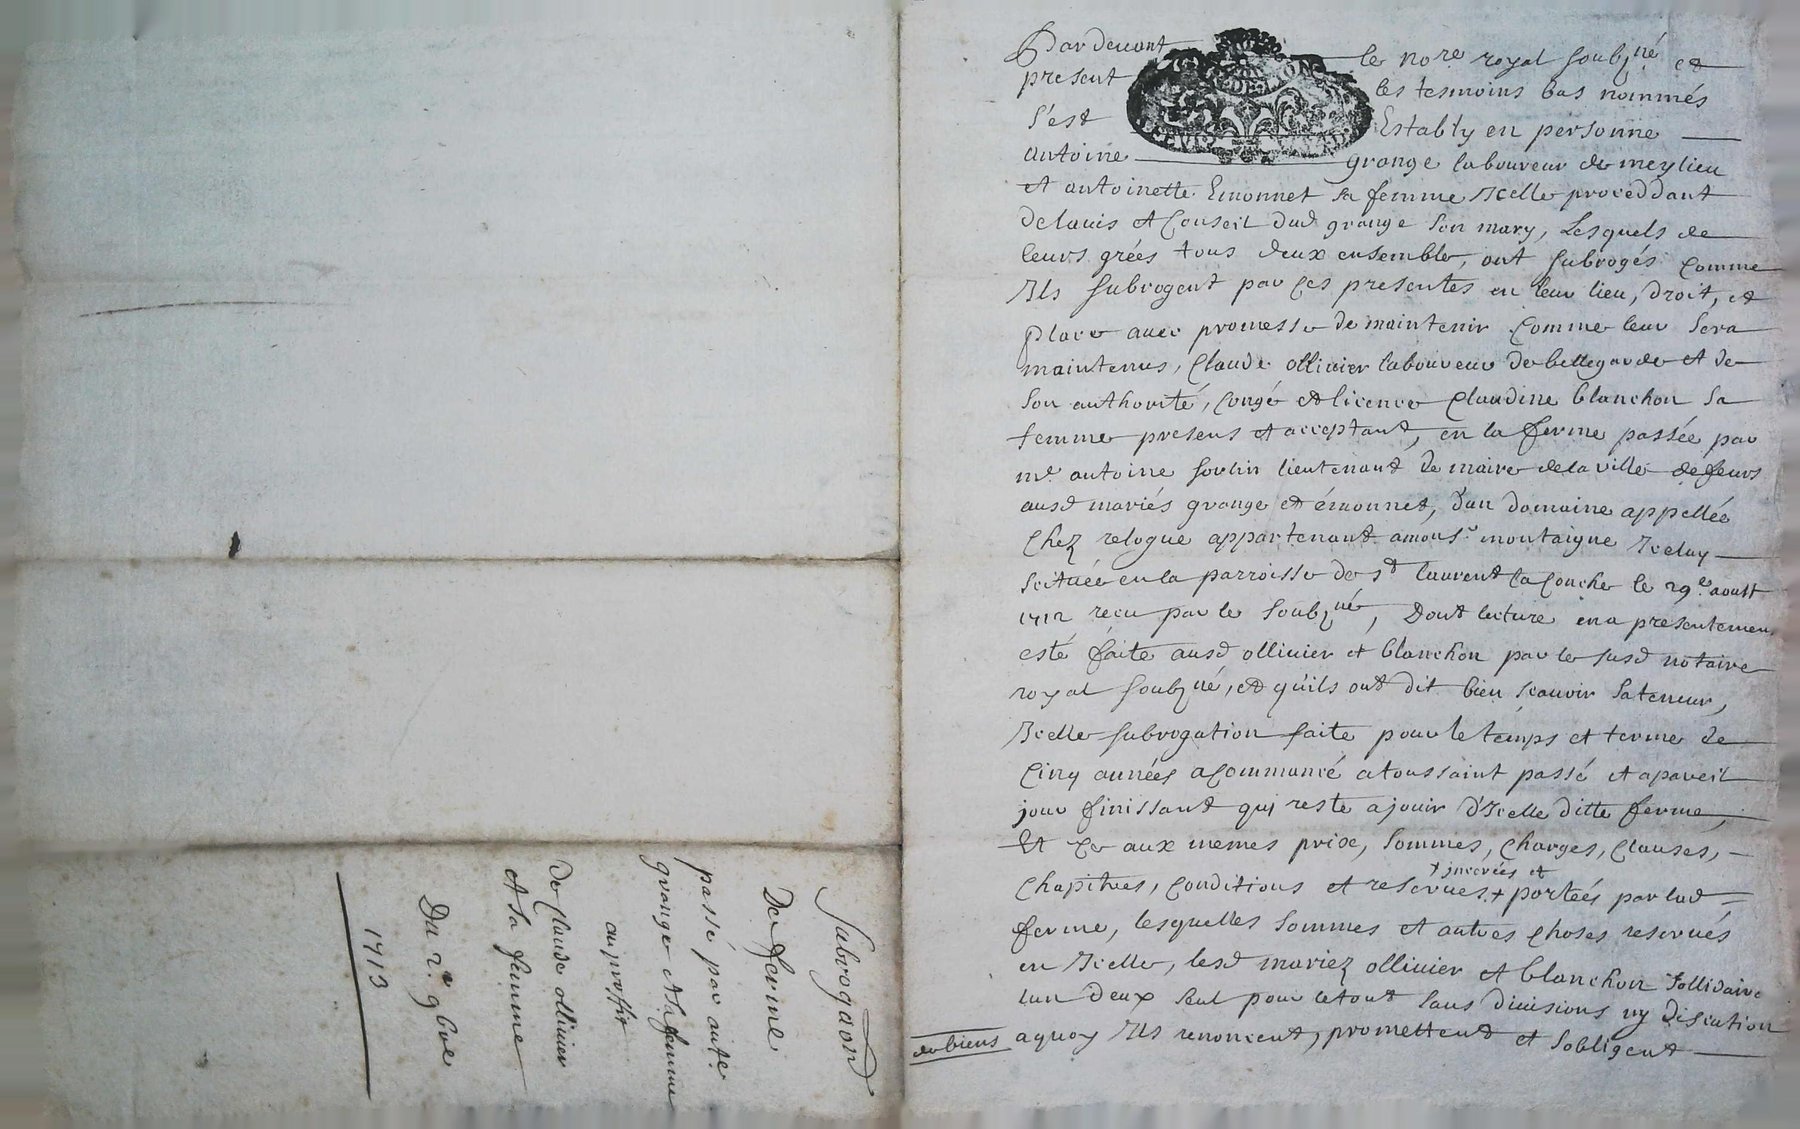 Pardevant le no.re royal soubz.né et
present les tesmoins bas nommés
s'est Estably en personne
antoine grange laboureur de meylieu
et antoinette Emonnet sa femme Icelle proceddant
de lauis et Conseil dud grange son mary, Lesquels de
leurs grées tous deux ensemble, ont subrogés comme
Ils subrogent par ces presentes en leur lieu, droit, et
place auec promesse de maintenir comme leur sera
maintenus, Claude ollivier laboureur de bellegarde et de
son authorité, congé et licence Claudine blanchon sa
femme presens et acceptant, en la ferme passée par
m.e antoine sorlin lieutenant de maire de la ville de feurs
ausd mariés grange et émonnet, d'un domaine appellée
Chez relogue appartenant a mons.r montaigne Iceluy
scituée en la parroisse de s.t laurent la Conche le 29.e aoust
1712 recu par le soubz.né, Dont lecture en a presentement
esté faite ausd ollivier et blanchon par le susd notaire
royal soubz.né, et qu'ils ont dit bien scauoir sa teneur,
Icelle subrogation faite pour le temps et terme de
Cinq années a Commancé a toussaint passé et a pareil
jour finissant quj reste a jouir d'Icelle ditte ferme,
Et Ce aux memes prix, sommes, Charges, Clauses,
+ jnserées et
Chapitres, Conditions et reserues + portées par lad
ferme, lesquelles sommes et autres Choses reserués
en Icelle, lesd mariez ollivier et blanchon sollidaire
lun deux seul pour le tout sans diuisions ny discution
a quoy Ils renoncent, promettent et sobligent
de biens
Subrogaon
De ferme
passé par ante
grange et sa femme
au proffit
de Claude ollivier
et sa femme
Du 2.e 9bre
1713